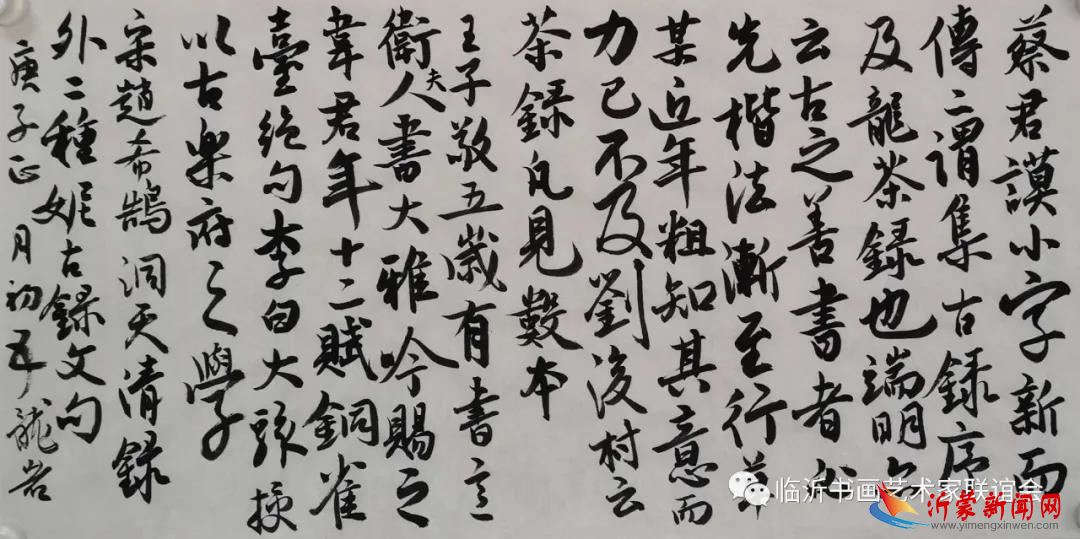 蔡君謨小字新而
傳二謂集古錄序
及龍茶錄也端明亦
云古之善書者必
先楷法漸至行草
某近年粗知其意而
力已不及劉後村云
茶錄凡見數本
王子敬五歲有書意
衛夫人書大雅吟賜之
韋君年十二賦銅雀
臺絕句李白大駭
授以古樂府之學
宋趙希鵠洞天清錄
外二種妮古錄文句
庚子正月初五龍岩
临沂书画艺术家联谊会
沂蒙新闻网
www.yimengxinwen.com